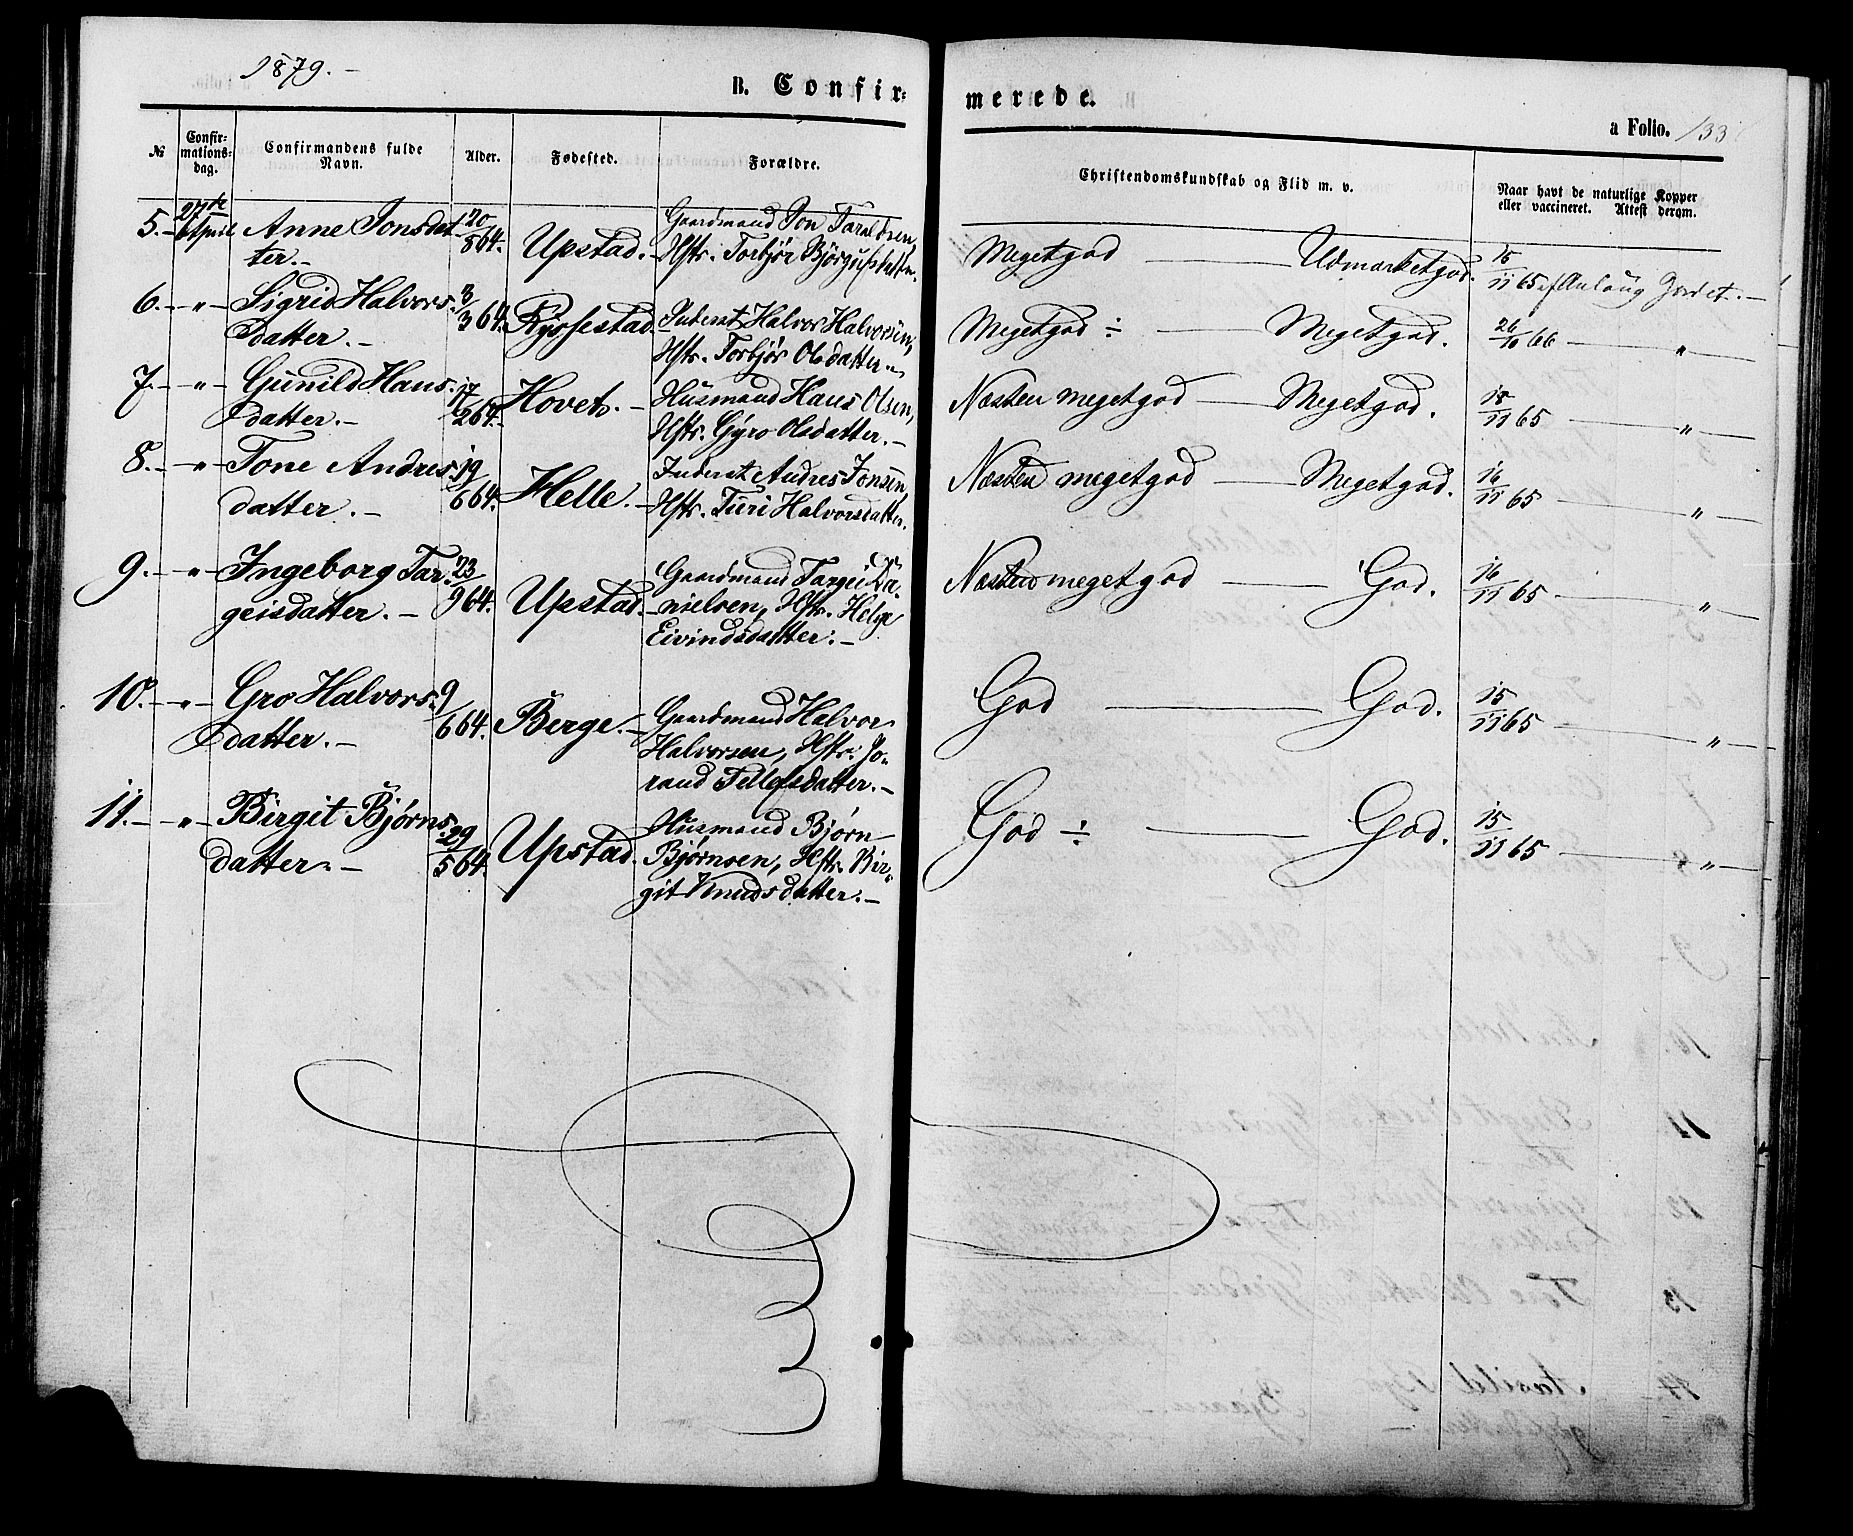 1879.-
B. Confir-
merede.
a Folio. 133
№
Confir-
mations-
dag.
Confirmandens fulde
Navn.
Alder.
Fødested.
Forældre.
Christendomskundskab og Flid m. v.
Naar havt de naturlige Kopper
eller vaccineret. Attest derom.
5.- 27de April Anne Jonsdat- 20/8 64. Upstad.- Gaardmand Jon Taraldsen,
ter.- Hstr. Torbjør
Megetgod — Udmarketgod. 15/11 65 af Anlaug
6.- „- Sigrid Halvors- 3/3 64. Ryssestad. Inderst Halvor Halvorsen,
datter.- Hstr. Torbjør Olsdatter.-
Megetgod ÷ — Megetgod. 26/10 66 — „
7.- „- Gunild Hans- 17/2 64.- Hovet.- Husmand Hans Olsen,
datter.- Hstr. Gyro Olsdatter.-
Næsten megetgod — Megetgod. 18/11 65 — „
8.- „- Tone Andres- 19/6 64. Helle.- Inderst Andres Jonsen
datter.- Hstr. Turi Halvorsdatter.
Næsten megetgod — Megetgod. 16/11 65 — „
9.- „- Ingeborg Tar- 23/9 64. Upstad.- Gaardmand Targei Da-
geisdatter.- nielsen, Hstr. Helge
Eivindsdatter.-
Næsten megetgod — God. 16/11 65 — „
10.- „- Gro Halvors- 9/6 64. Berge.- Gaardmand Halvor
datter.- Halvorsen, Hstr. Jo-
rand Tellefsdatter.-
God — God. 15/11 65 — „
11.- „- Birgit Bjørns- 29/5 64. Upstad. Husmand Bjørn
datter.- Bjørnsen, Hstr. Bir-
git Knudsdatter.-
God ÷ — God. 15/11 65 — „